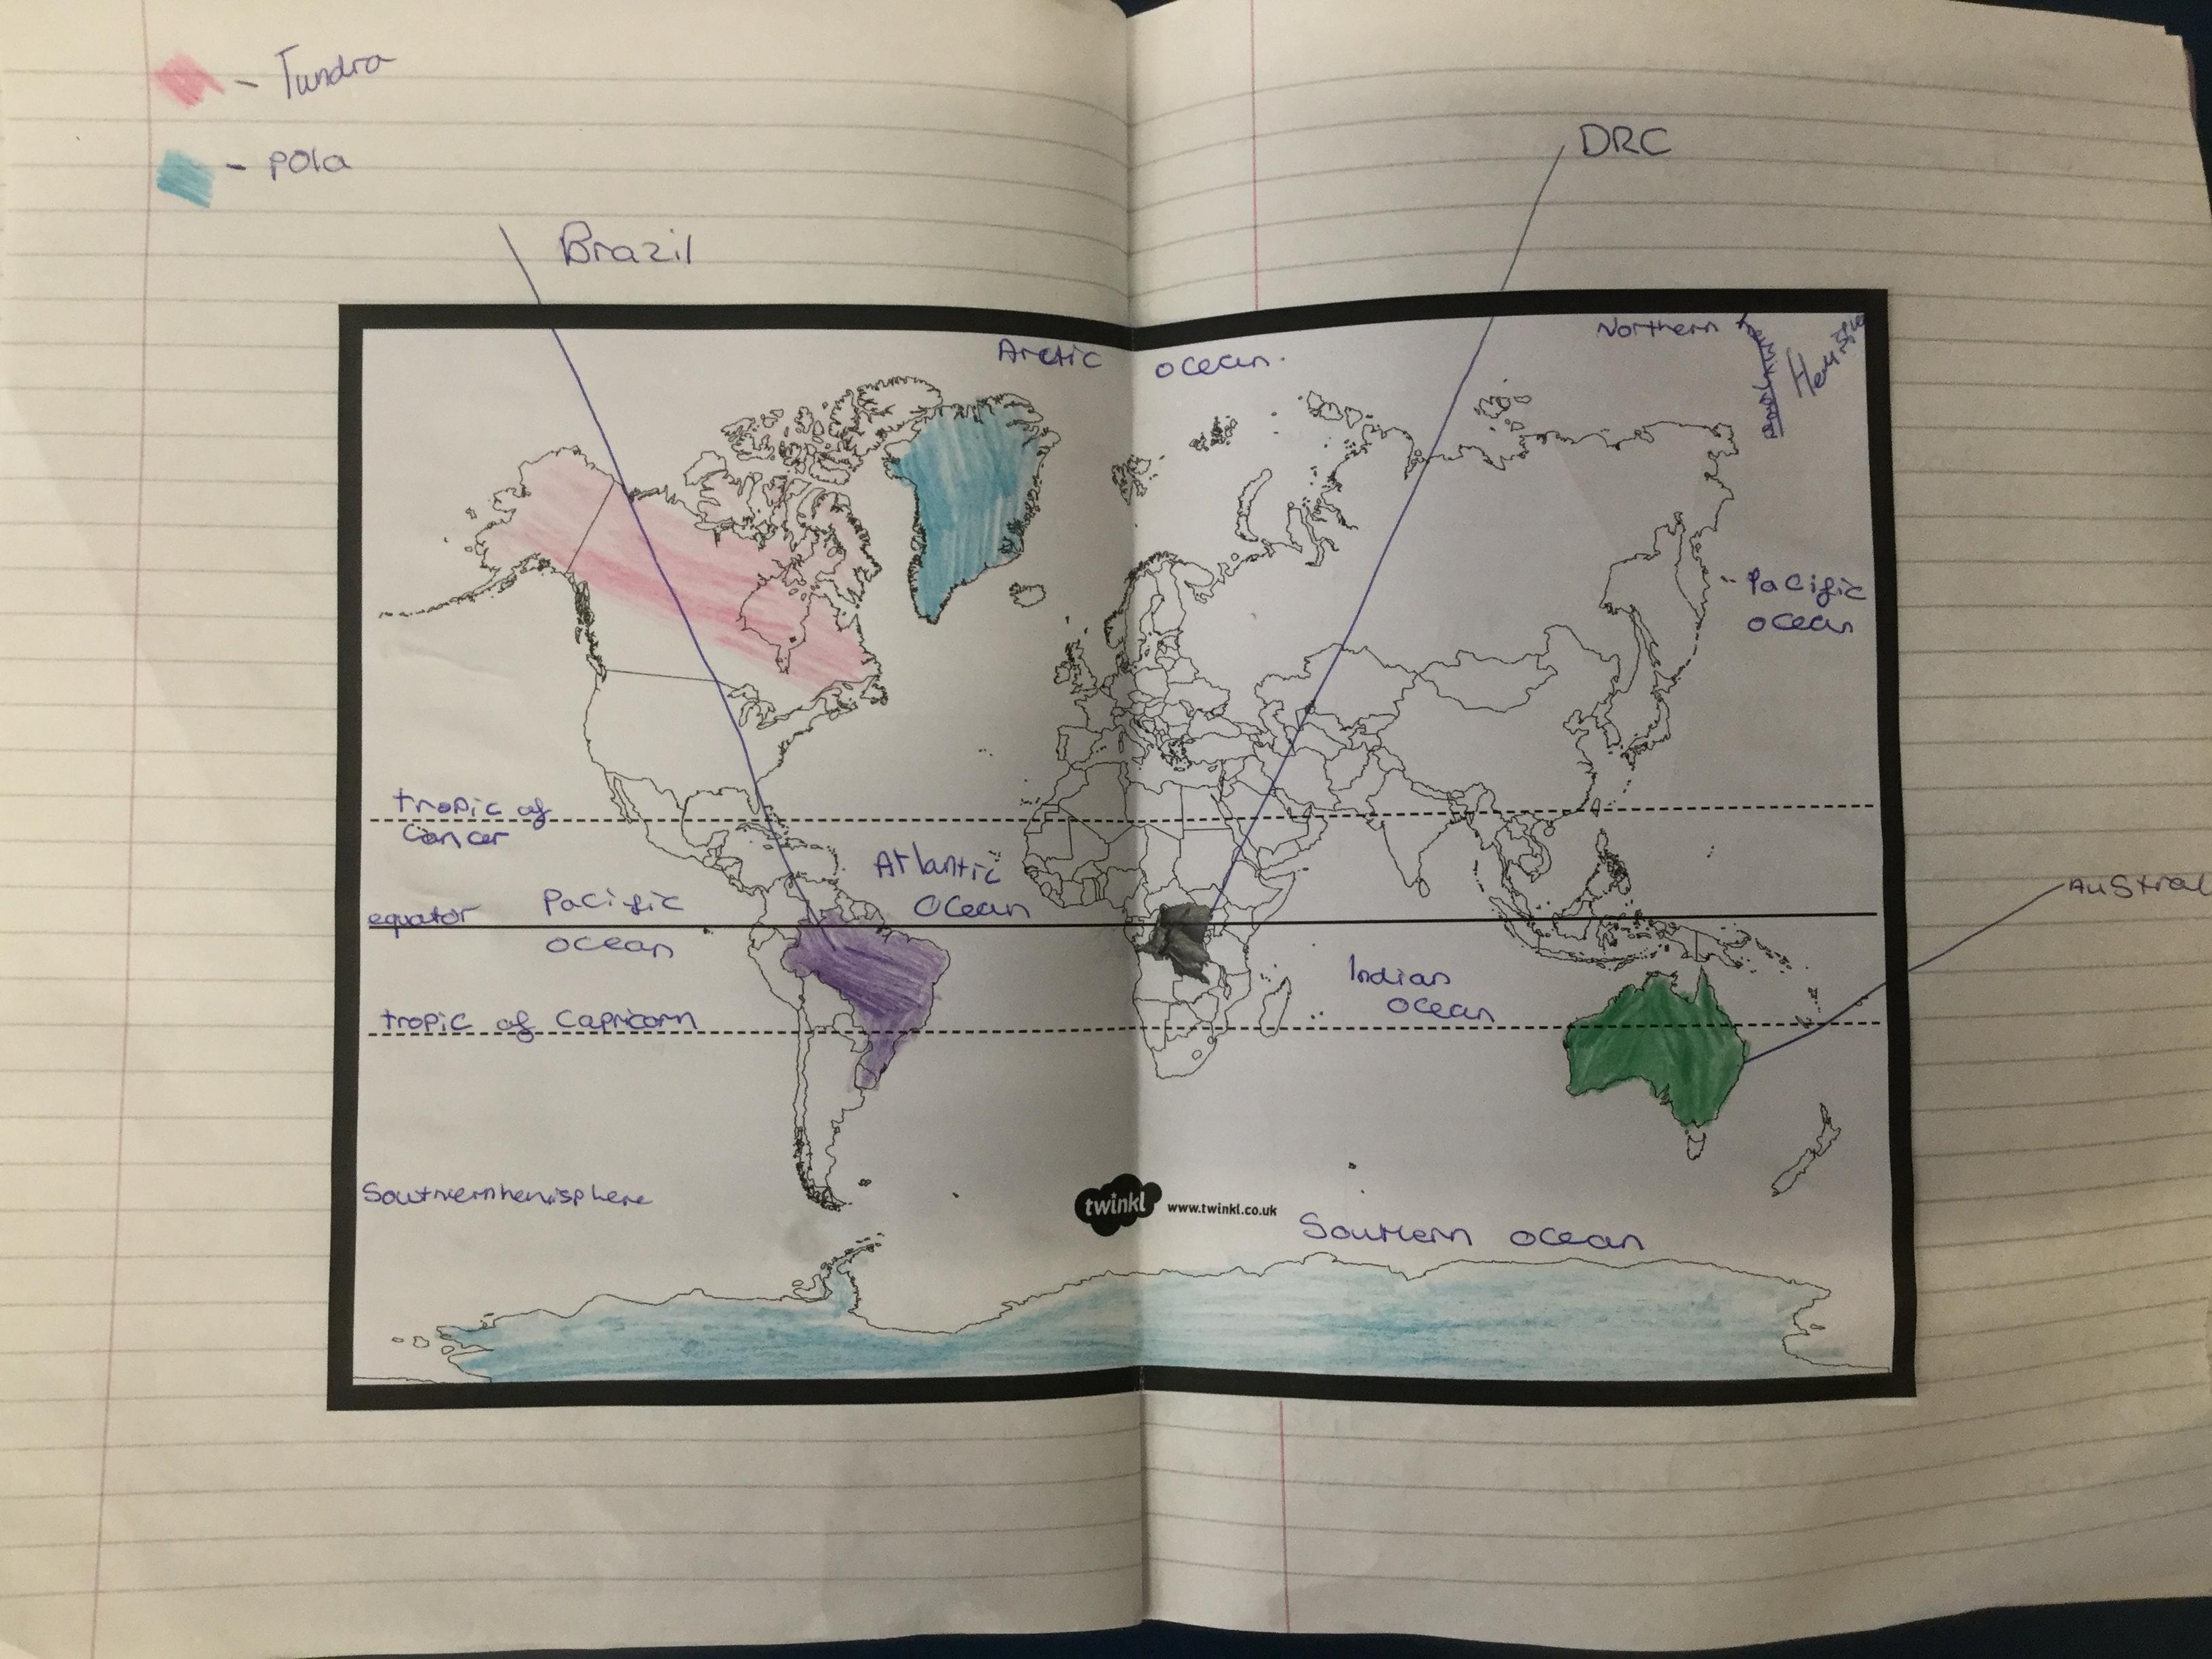 - Tundra
- Pola
Brazil
DRC
Arctic ocean.
Northern
Hemisphe
Pacific
ocean
tropic of
Cancer
Atlantic
Ocean
equator
Pacific
ocean
Austral
Indian
ocean
tropic of Capricorn
Southernhemisphere
twinkl www.twinkl.co.uk
Southern ocean